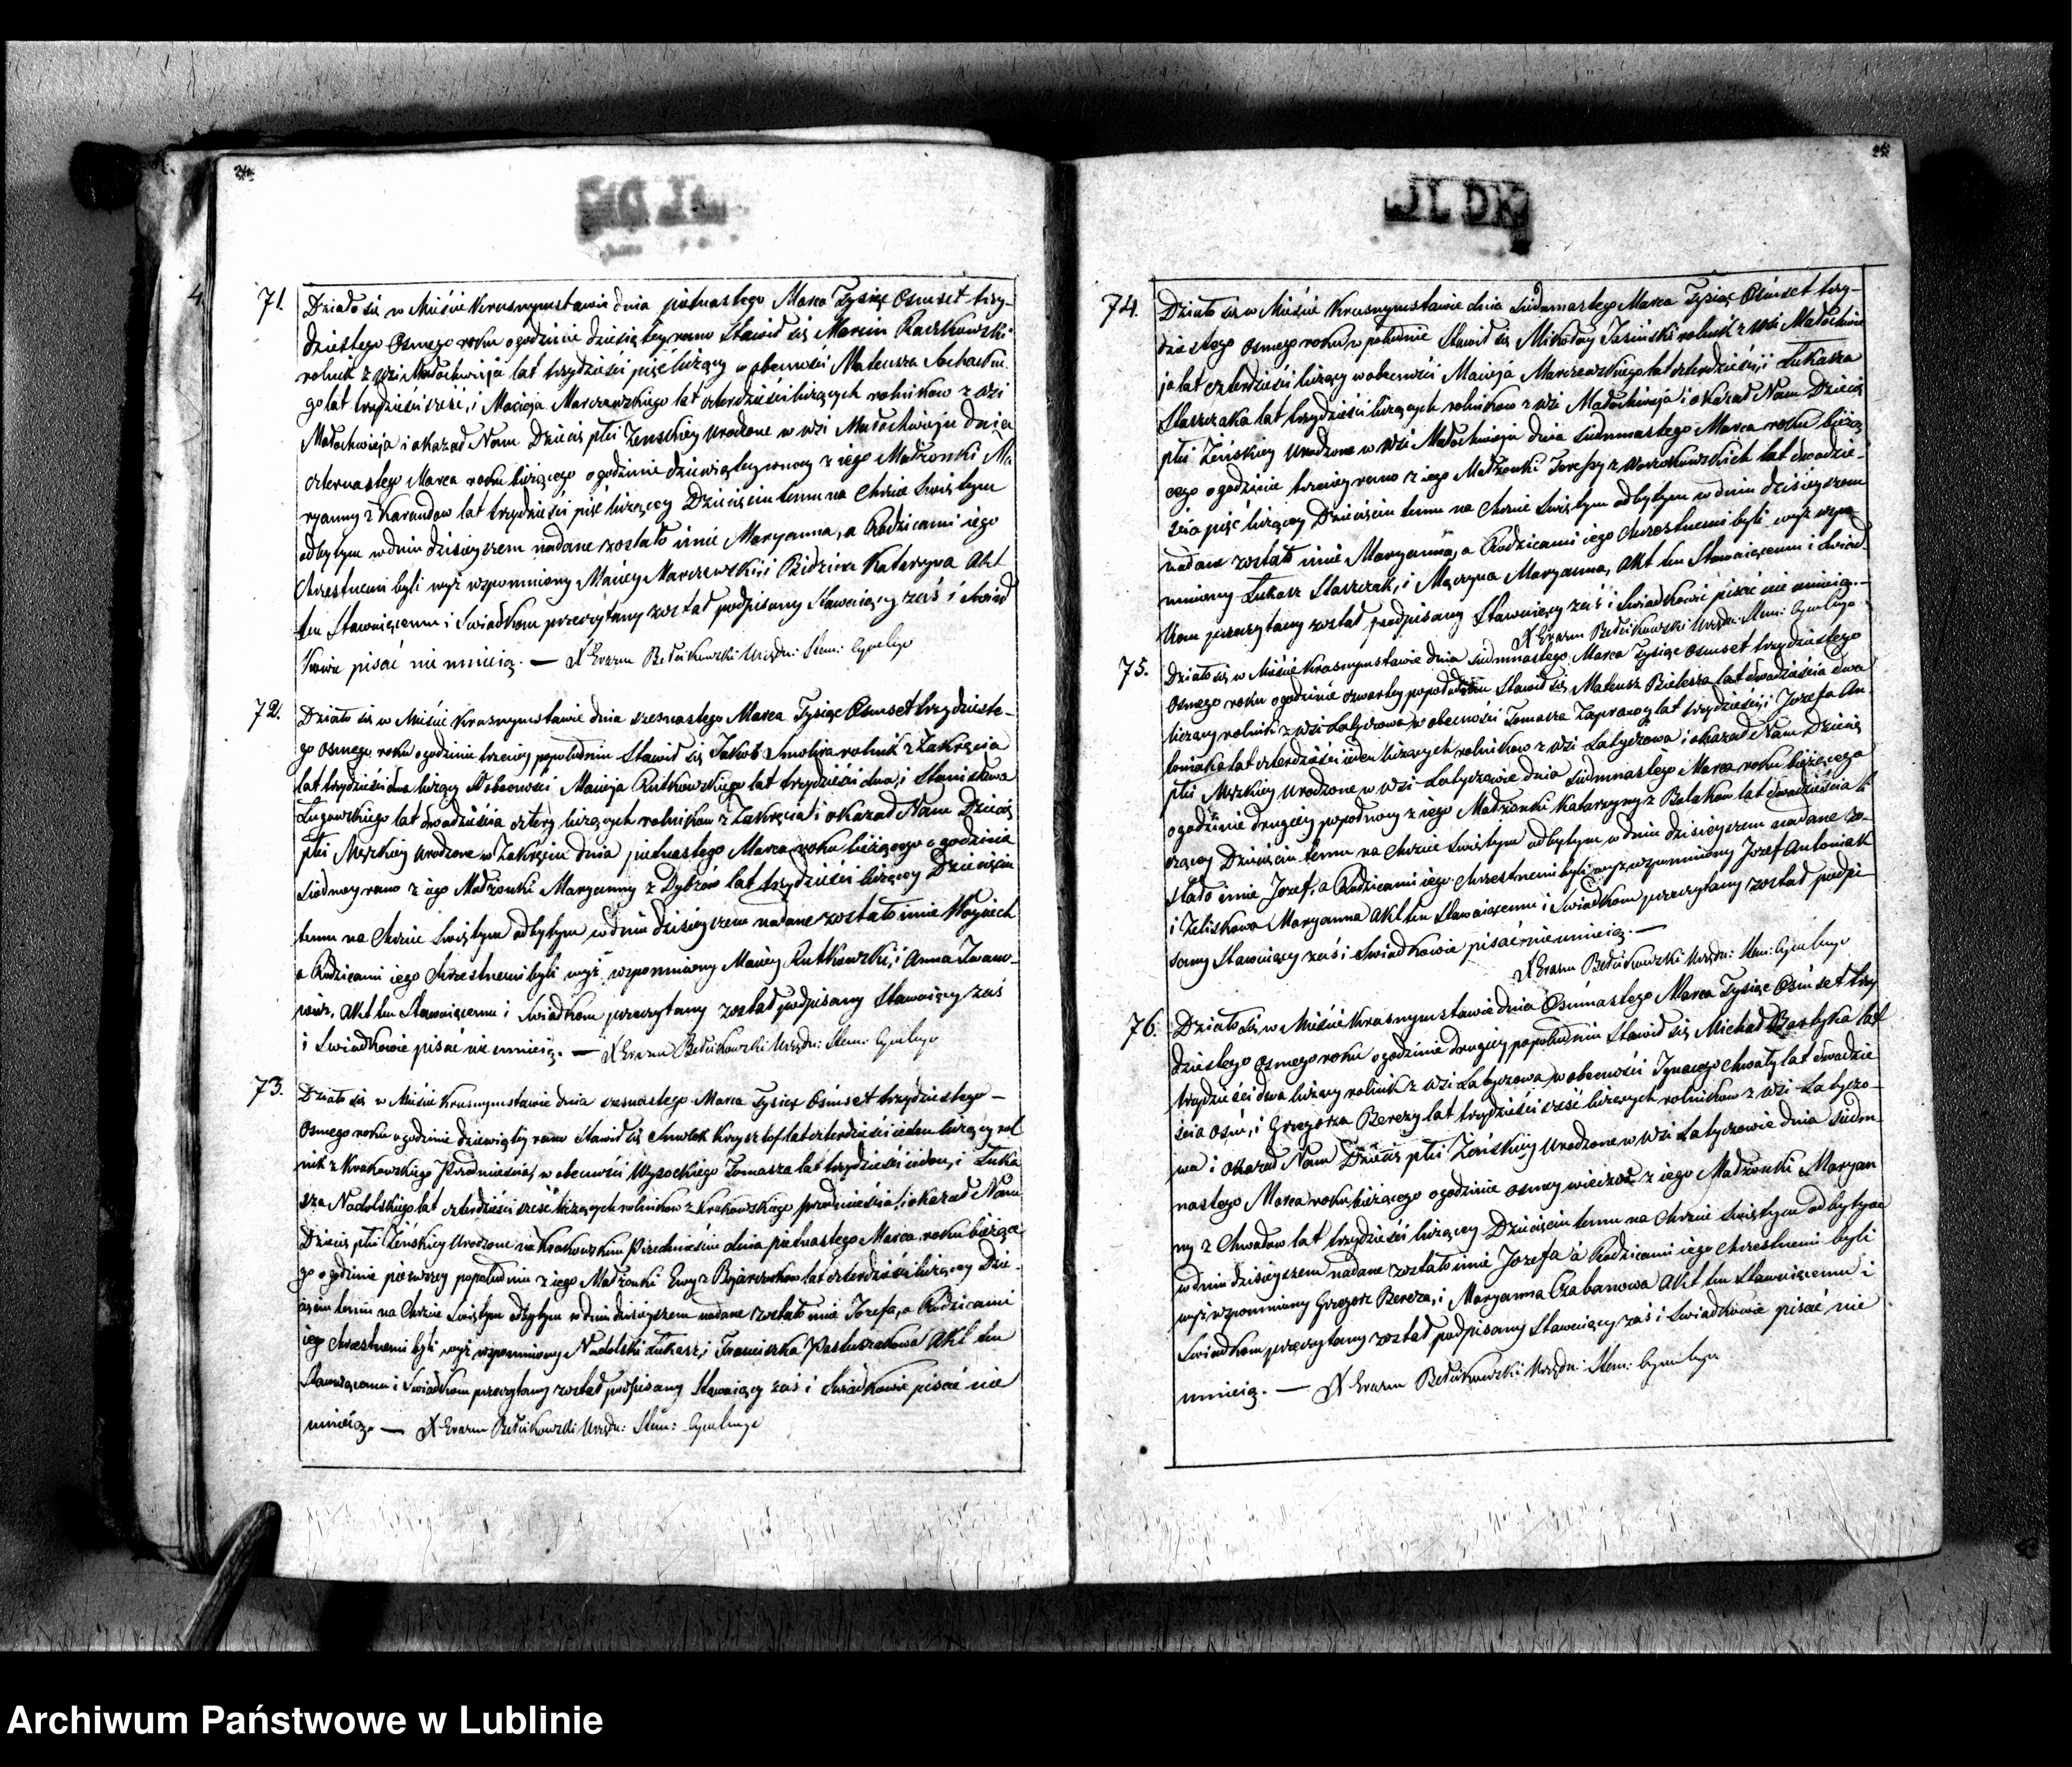 71. Działo się w Mieście Krasnymstawie dnia piętnastego Marca Tysiąc Osmset trzy-
dziestego Osmego roku o godzinie dziesiątey rano Stawił się Marcin Raczkowski
rolnik z wsi Małochwieja lat trzydzieści pięć liczący w obecności Mateusza
go lat trzydzieści sześć, i Macieja Marczewskiego lat czterdzieści liczących rolników z wsi
Małochwieja i okazał Nam Dziecię płci Żenskiey urodzone w wsi Małochwieju dnia
czternastego Marca roku bieżącego o godzinie dziewiątey wnocy z iego Małżonki Ma
ryanny z Karaudow lat trzydzieści pięć liczącey Dziecięciu temu na Chrzcie Swiętym
odbytym w dniu dzisieyszem nadane zostało imie Maryanna, a Rodzicami iego
Chrzestnemi byli wyż wzpomniony Maciey Marczewski, i Katarzyna Akt
ten Stawaiącemu i Swiadkom przeczytany został podpisany Stawaiący zaś i Swiad
kowie pisać nie umieią. — X Erazm Bełcikowski Urzędn: Stanu Cywilnego
72. Działo się w Mieście Krasnymstawie dnia szesnastego Marca Tysiąc Osmset trzydzieste-
go osmego roku o godzinie trzeciey popołudniu Stawił się Jakób Smolira rolnik z Zakręcia
lat trzydzieści dwa liczący W obecności Macieja Rutkowskiego lat trzydzieści dwa, i Stanisława
Ługowskiego lat dwadzieścia cztery liczących rolników z Zakręcia i okazał Nam Dziecię
płci Męzkiey urodzone w Zakręciu dnia piętnastego Marca roku bieżącego o godzinie
siodmey rano z iego Małżonki Maryanny z Dybzów lat trzydzieści liczącey Dziecięciu
temu na Chrzcie Swiętym odbytym w dniu dzisieyszem nadane zostało imie Woyciech
a Rodzicami iego Chrzestnemi byli wyż wzpomniony Maciey Rutkowski, i Anna Iwano-
wicz, Akt ten Stawaiącemu i Swiadkom przeczytany został podpisany Stawaiący zaś
i Swiadkowie pisać nie umieią. — X Erazm Bełcikowski Urzędn: Stanu: Cywilnego
73. Działo się w Mieście Krasnymstawie dnia szesnastego Marca Tysiąc Ośmset trzydziestego —
Osmego roku o godzinie dziewiątey rano Stawił się Smolak Krzysztof lat czterdzieści ieden liczący rol
nik z Krakowskiego Przedmieścia, w obecności Wysockiego Tomasza lat trzydzieści ieden, i Łuka
sza Nadolskiego lat czterdzieści sześć liczących rolników z Krakowskiego przedmieścia i okazał Nam
Dziecię płci Żeńskiey urodzone na Krakowskim Przedmieściu dnia piętnastego Marca roku bieżące
go o godzinie pierwszey popołudniu z iego Małżonki Ewy z Bojarczuków lat czterdzieści liczącey Dzie-
cięciu temu na Chrzcie Swiętym odbytym w dniu dzisieyszem nadane zostało imie Jozefa, a Rodzicami
iego Chrzestnemi byli wyż wzpomniony Nadolski Łukasz, i Franciszka Pastuszakowa Akt ten
Stawaiącemu i Swiadkom przeczytany został podpisany Stawaiący zaś i Swiadkowie pisać nie
umieią. — X Erazm Bełcikowski Urzędn: Stanu: Cywilnego
JL DK
74. Działo się w Mieście Krasnymstawie dnia siedmnastego Marca Tysiąc Ośmset trzy-
dziestego Osmego roku w południe Stawił się Mikołay Jasiński rolnik z wsi Małochwie
ja lat czterdzieści liczący w obecności Macieja Marczewskiego lat czterdzieści, i Łukasza
Staszczaka lat trzydzieści liczących rolników z wsi Małochwieja i okazał Nam Dziecię
płci Żeńskiey urodzone w wsi Małochwieju dnia siedmnastego Marca roku bieżą
cego o godzinie trzeciey rano z iego Małżonki Teressy z lat dwadzie-
ścia pięć liczącey Dziecięciu temu na Chrzcie Swiętym odbytym w dniu dzisieyszem
nadane zostało imie Maryanna, a Rodzicami iego Chrzestnemi byli wyż wzpo
mniony Łukasz Staszczak, i Maryanna, Akt ten Stawaiącemu i Swiad
kom przeczytany został podpisany Stawaiący zaś i Swiadkowie pisać nie umieią. —
X Erazm Bełcikowski Urzędn: Stanu: Cywilnego
75. Działo się w Mieście Krasnymstawie dnia siedmnastego Marca Tysiąc Osmset trzydziestego
Osmego roku o godzinie czwartey popołudniu Stawił się Mateusz Bielesza lat dwadzieścia dwa
liczący rolnik z wsi Łatyczowa w obecności Tomasza lat trzydzieści, i Jozefa An
toniaka lat czterdzieści ieden liczących rolników z wsi Łatyczowa i okazał Nam Dziecię
płci Męzkiey urodzone w wsi Łatyczowie dnia siedmnastego Marca roku bieżącego
o godzinie drugiey popołnocy z iego Małżonki Katarzyny z Bolaków lat dwadzieścia li
czącey Dziecięciu temu na Chrzcie Swiętym odbytym w dniu dzisieyszem nadane zo-
stało imie Jozef, a Rodzicami iego Chrzestnemi byli wyż wzpomniony Jozef Antoniak
i Zeliskowa Maryanna Akt ten Stawaiącemu i Swiadkom przeczytany został podpi
sany Stawaiący zaś i Swiadkowie pisać nie umieią. —
X Erazm Bełcikowski Urzędn: Stanu: Cywilnego
76. Działo się w Mieście Krasnymstawie dnia Osmnastego Marca Tysiąc Ośmset trzy
dziestego Osmego roku o godzinie drugiey popołudniu Stawił się Michał Bartyka lat
trzydzieści dwa liczący rolnik z wsi Łatyczowa w obecności Ignacego Chwały lat dwadzie
ścia ośm, i Grzegorza Berezy lat trzydzieści sześć liczących rolników z wsi Łatyczo-
wa i okazał Nam Dziecię płci Żeńskiey urodzone w wsi Łatyczowie dnia siedm
nastego Marca roku bieżącego o godzinie osmey wieczor z iego Małżonki Maryan
ny z Chwałow lat trzydzieści liczącey Dziecięciu temu na Chrzcie Swiętym odbytym
w dniu dzisieyszem nadane zostało imie Jozefa a Rodzicami iego Chrzestnemi byli
wyż wzpomniony Grzegorz Bereza, i Maryanna Czabanowa Akt ten Stawaiącemu i
Swiadkom przeczytany został podpisany Stawaiący zaś i Swiadkowie pisać nie
umieią. — X Erazm Bełcikowski Urzędn: Stanu: Cywilnego
Archiwum Państwowe w Lublinie